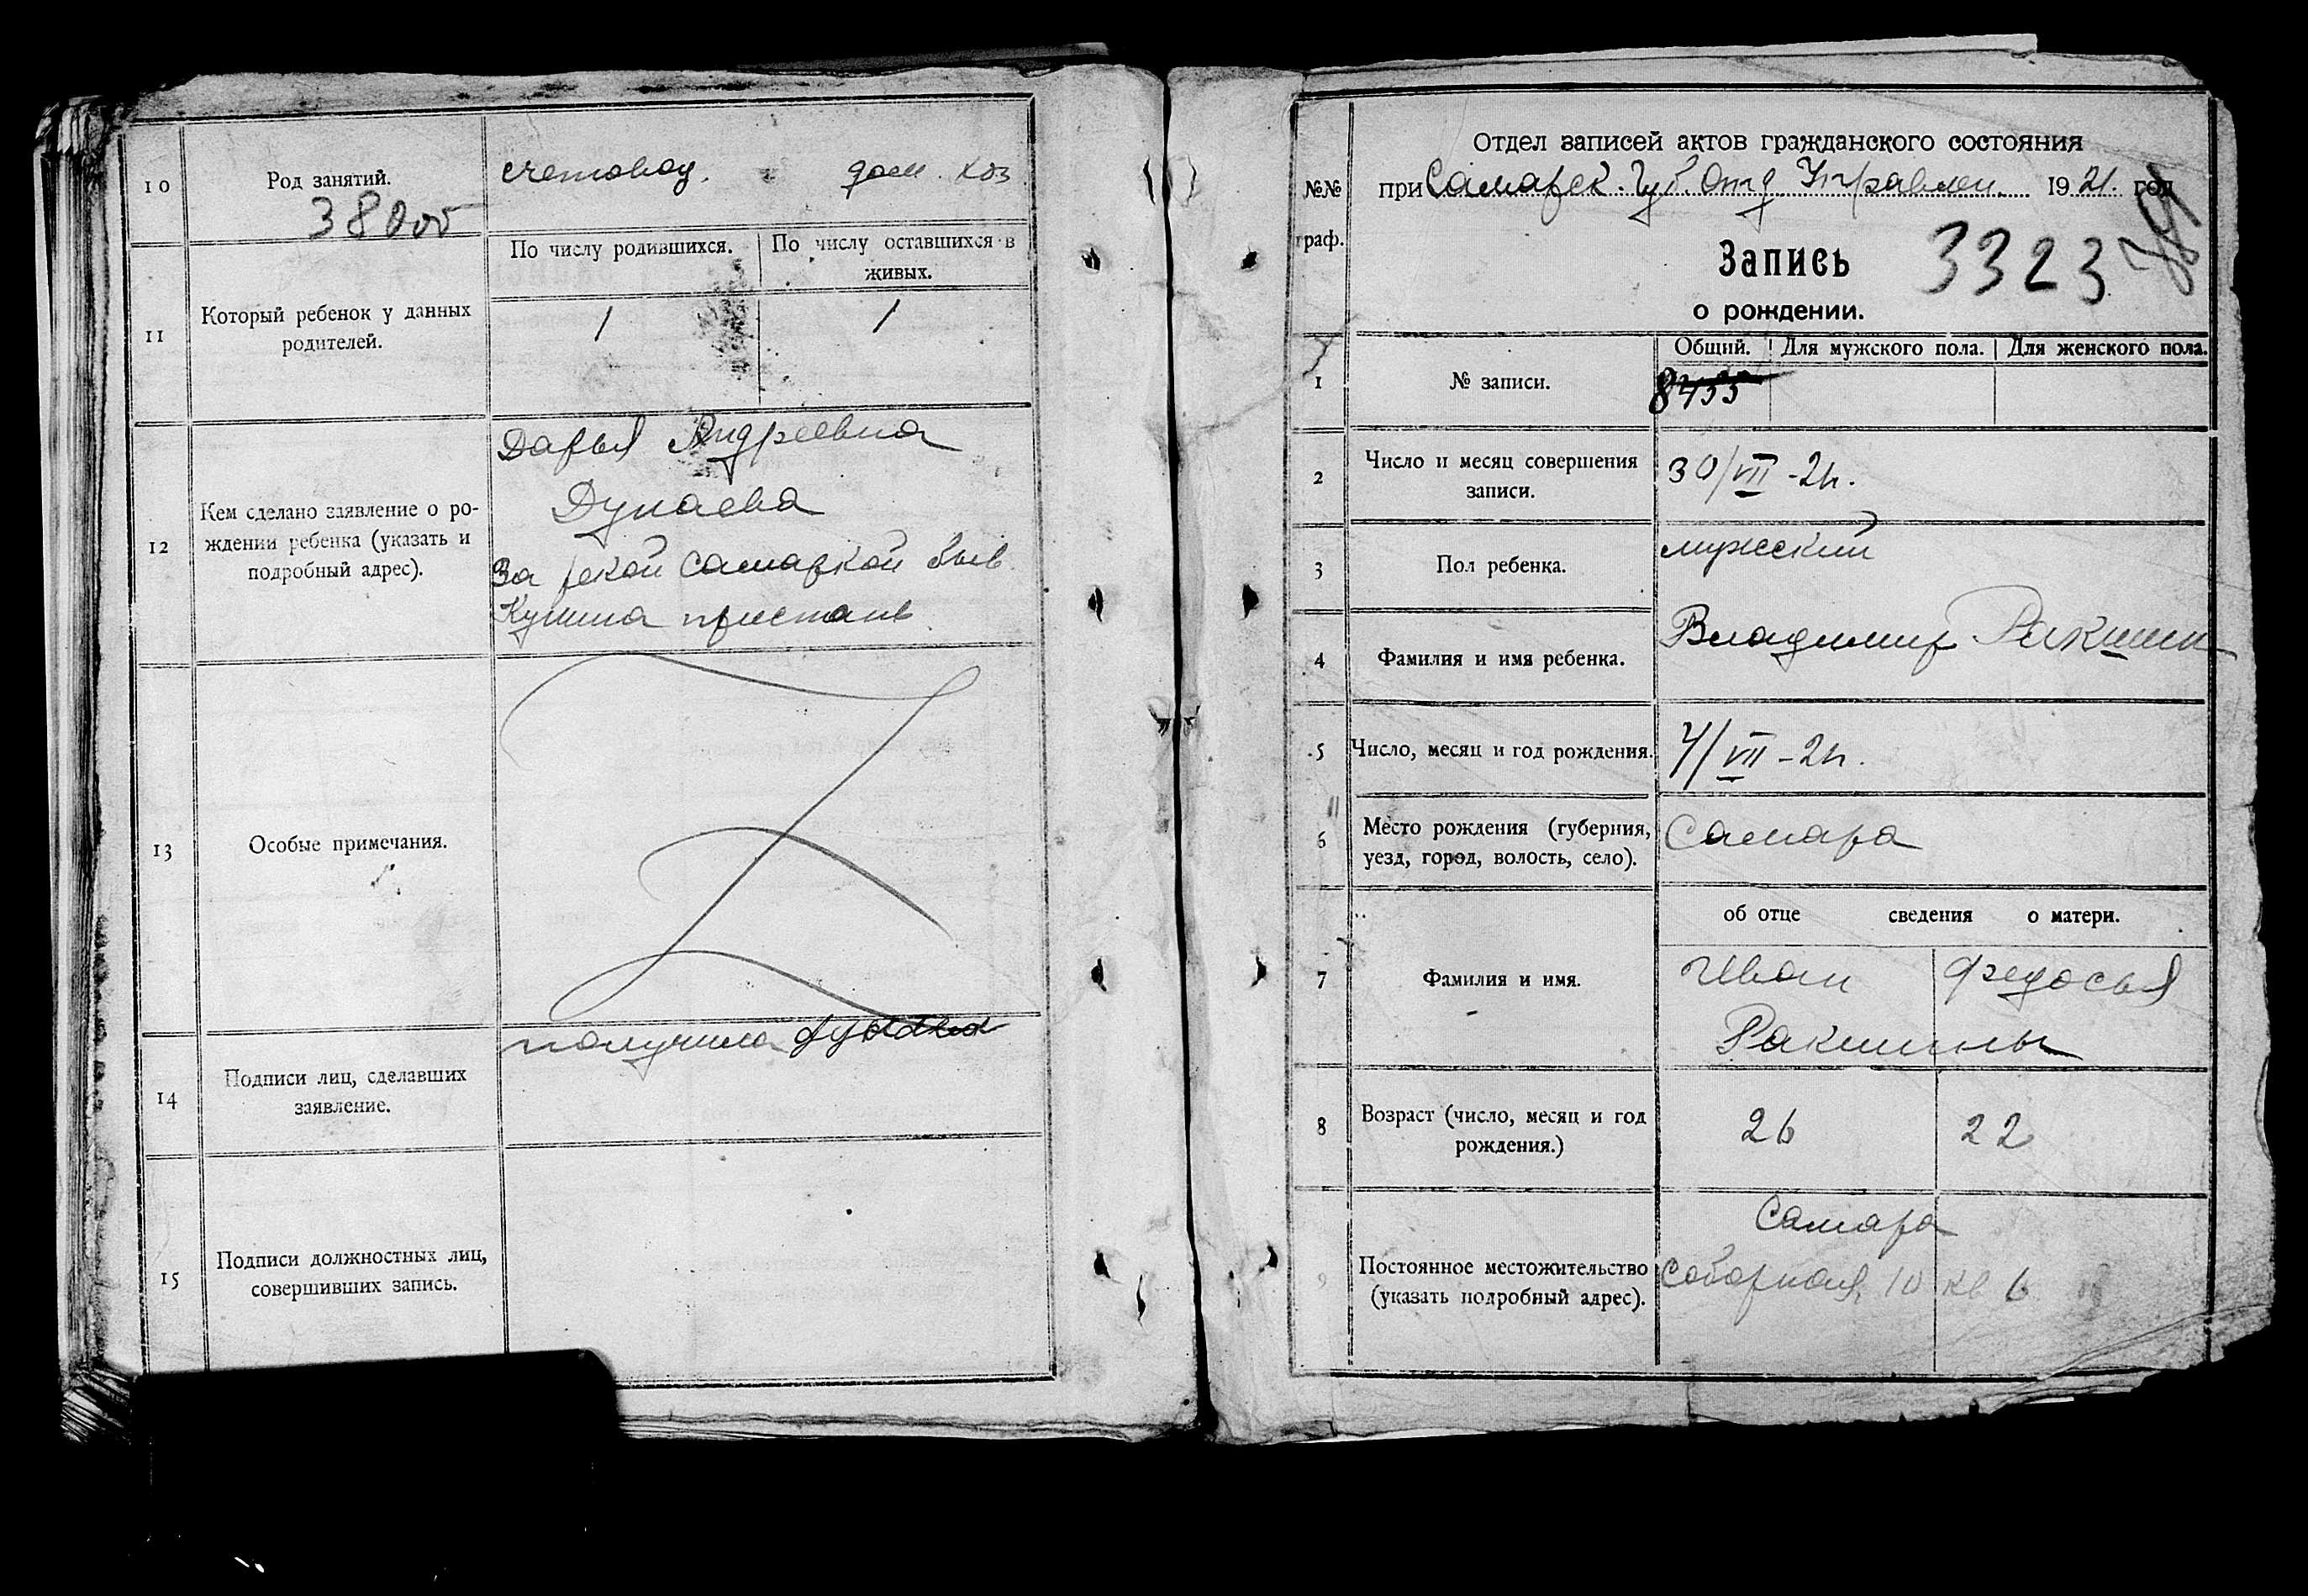 10
Род занятий.
счетовод. дом. хоз
38000
По числу родившихся. По числу оставшихся в
живых.
11
Который ребенок у данных
родителей.
1 1
12
Кем сделано заявление о ро-
ждении ребенка (указать и
подробный адрес).
Дарья Андреевна
Дунаева
За рекой Самаркой быв.
Кунина пристань
13
Особые примечания.
14
Подписи лиц, сделавших
заявление.
получила
15
Подписи должностных лиц,
совершивших запись.
№№
граф.
Отдел записей актов гражданского состояния
при Самарск. Губ. Отд Управлен. 1921 год
Запись 3323
о рождении.
Общий. Для мужского пола. Для женского пола.
1
№ записи.
8455
2
Число и месяц совершения
записи.
30/VII-21г.
3
Пол ребенка.
мужский
4
Фамилия и имя ребенка.
Владимир Ракшин
5
Число, месяц и год рождения.
4/VII-21г.
6
Место рождения (губерния,
уезд, город, волость, село).
Самара
об отце сведения о матери.
7
Фамилия и имя.
Иван Федосья
Ракшины
8
Возраст (число, месяц и год
рождения.)
26 22
9
Постоянное местожительство
(указать подробный адрес).
Самара
Соборная, 10 кв 6